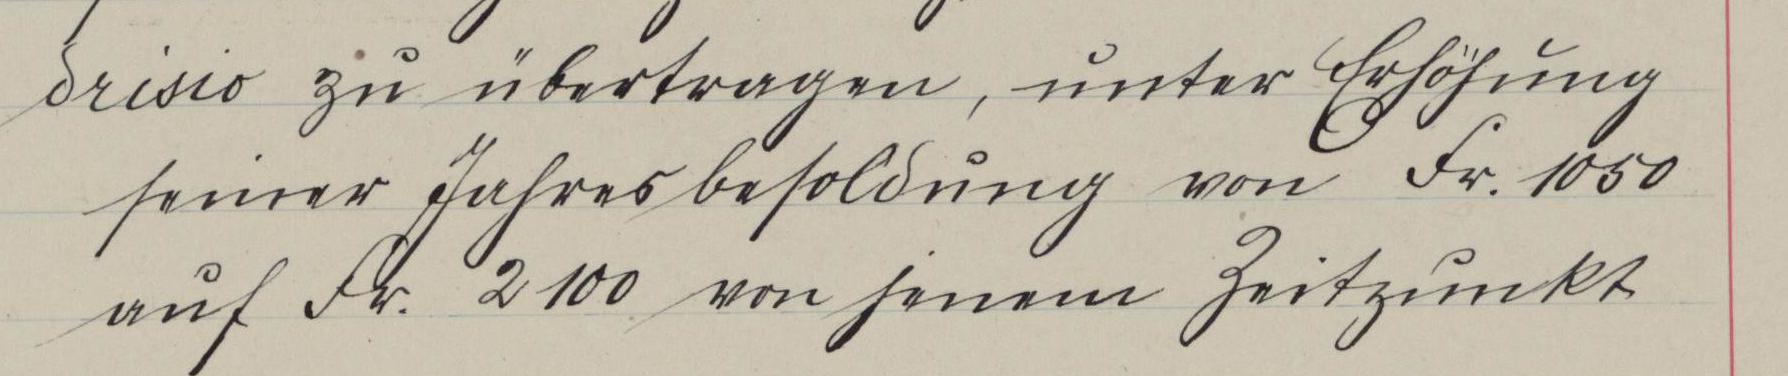 drisio zu übertragen, unter Erhöhung
seiner Jahresbesoldung von Fr. 1050
auf Fr. 2100 von jenem Zeitpunkt